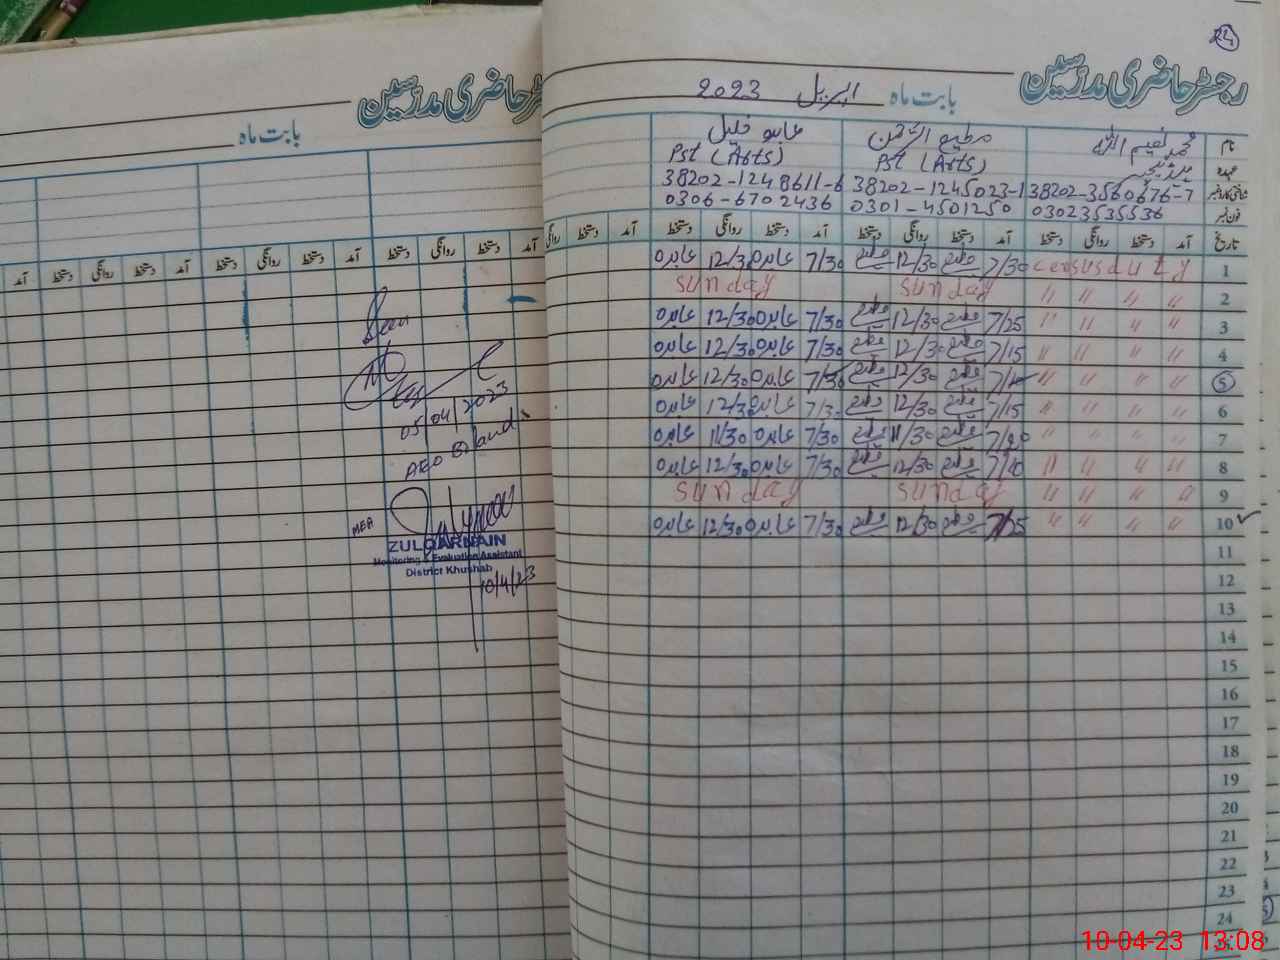 24
رجسٹر حاضری مدرسین
بابت ماہ اپریل 2023
نام محمد نعیم اللہ مطیع الرحمٰن عابدہ خلیل
عہدہ ہیڈ ٹیچر Pst (Arts) Pst (Arts)
شناختی کارڈ نمبر 38202-3560676-7 38202-1245023-1 38202-1248611-6
فون نمبر 03023535536 0301-4501250 0306-6702436
تاریخ آمد دستخط روانگی دستخط آمد دستخط روانگی دستخط آمد دستخط روانگی دستخط آمد دستخط روانگی
1 census duty 7/30 مطیع 12/30 مطیع 7/30 عابدہ 12/30 عابدہ
2 " " " " sunday sunday
3 " " " " 7/25 مطیع 12/30 مطیع 7/30 عابدہ 12/30 عابدہ
4 " " " " 7/15 مطیع 12/30 مطیع 7/30 عابدہ 12/30 عابدہ
5 " " " " مطیع 12/30 مطیع 7/30 عابدہ 12/30 عابدہ
6 " " " " 7/15 مطیع 12/30 مطیع 7/30 عابدہ 12/30 عابدہ
7 " " " " مطیع 11/30 مطیع 7/30 عابدہ 11/30 عابدہ
8 " " " " مطیع 12/30 مطیع 7/30 عابدہ 12/30 عابدہ
9 " " " " sunday sunday
10 " " " " 7/25 مطیع 12/30 مطیع 7/30 عابدہ 12/30 عابدہ
11
12
13
14
15
16
17
18
19
20
21
22
23
24
رجسٹر حاضری مدرسین
بابت ماہ
دستخط آمد دستخط روانگی دستخط آمد دستخط روانگی دستخط آمد
Seen
05/04/2023
AEO
MEA
ZULQARNAIN
Monitoring & Evaluation Assistant
District Khushab
10/4/23
10-04-23 13:08